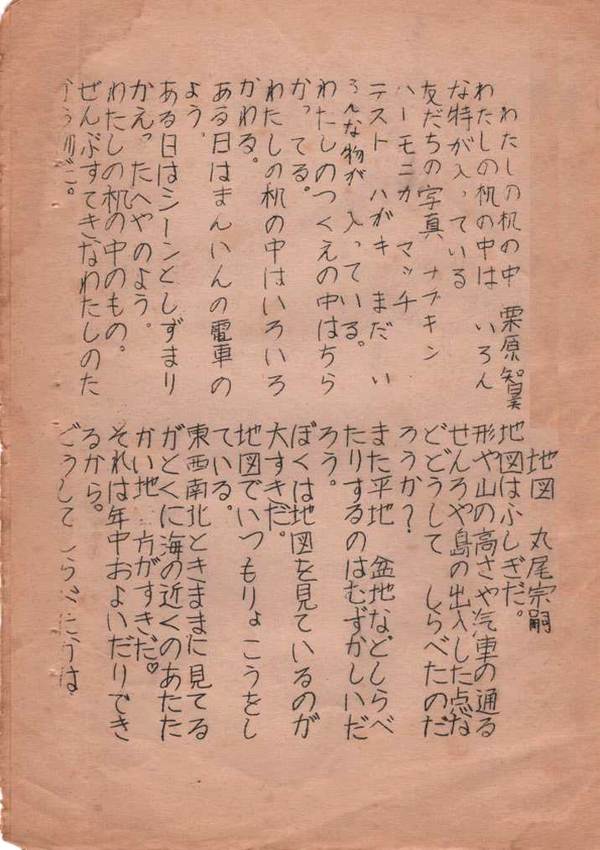 わたしの机の中　栗原智美
わたしの机の中は　いろん
な特が入っている
友だちの写真　ナプキン
ハーモニカ　マッチ
テスト　ハガキ　まだ　い
ろんな物が　入っている。
わたしのつくえの中はちら
かってる。
わたしの机の中はいろいろ
かわる。
ある日はまんいんの電車の
よう。
ある日はシーンとしずまり
かえったへやのよう。
わたしの机の中のもの。
ぜんぶすてきなわたしのた
地図　丸尾宗嗣
地図はふしぎだ。
形や山の高さや汽車の通る
せんろや島の出入した点な
どどうして　しらべたのだ
ろうか？
また平地　盆地などしらべ
たりするのはむずかしいだ
ろう。
ぼくは地図を見ているのが
大すきだ。
地図でいつもりょこうをし
ている。
東西南北ときままに見てる
がとくに海の近くのあたた
かい地　方がすきだ♡
それは年中およいだりでき
るから。
どうして